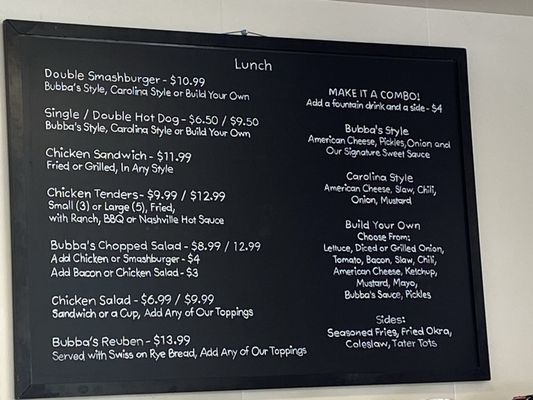 Lunch
Double Smashburger - $10.99
Bubba's Style, Carolina Style or Build Your Own
Single / Double Hot Dog - $6.50 / $9.50
Bubba's Style, Carolina Style or Build Your Own
Chicken Sandwich - $11.99
Fried or Grilled, In Any Style
Chicken Tenders - $9.99 / $12.99
Small (3) or Large (5), Fried,
with Ranch, BBQ or Nashville Hot Sauce
Bubba's Chopped Salad - $8.99 / 12.99
Add Chicken or Smashburger - $4
Add Bacon or Chicken Salad - $3
Chicken Salad - $6.99 / $9.99
Sandwich or a Cup, Add Any of Our Toppings
Bubba's Reuben - $13.99
Served with Swiss on Rye Bread, Add Any of Our Toppings
MAKE IT A COMBO!
Add a fountain drink and a side - $4
Bubba's Style
American Cheese, Pickles, Onion and
Our Signature Sweet Sauce
Carolina Style
American Cheese, Slaw, Chili,
Onion, Mustard
Build Your Own
Choose From:
Lettuce, Diced or Grilled Onion,
Tomato, Bacon, Slaw, Chili,
American Cheese, Ketchup,
Mustard, Mayo,
Bubba's Sauce, Pickles
Sides:
Seasoned Fries, Fried Okra,
Coleslaw, Tater Tots